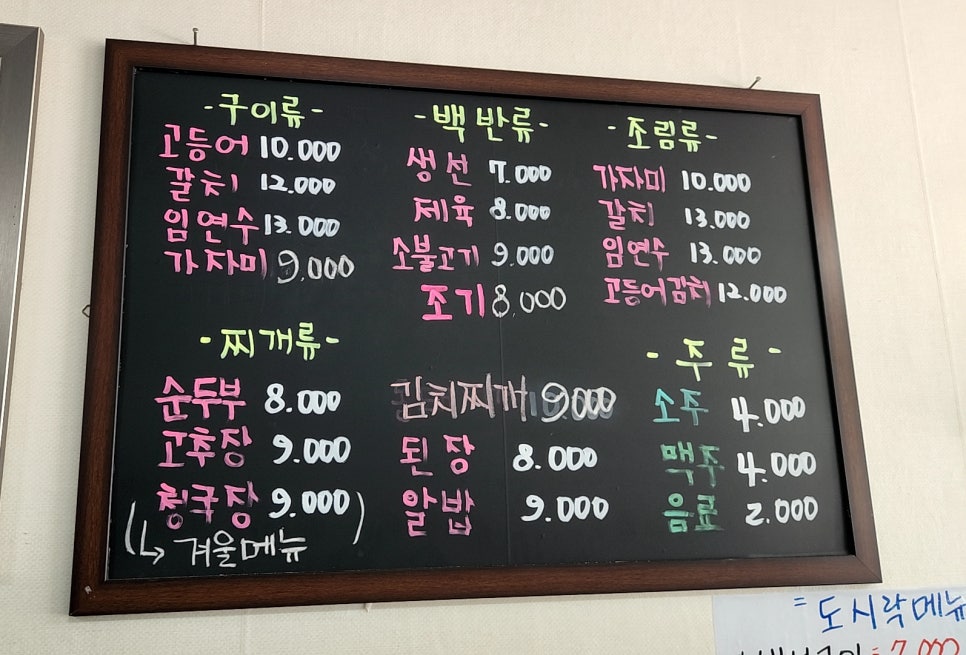 -구이류-
고등어 10.000
갈치 12.000
임연수 13.000
가자미 9.000
-백반류-
생선 7.000
제육 8.000
소불고기 9.000
조기 8.000
-조림류-
가자미 10.000
갈치 13.000
임연수 13.000
고등어김치 12.000
-찌개류-
순두부 8.000
고추장 9.000
청국장 9.000
(↳ 겨울메뉴)
김치찌개 9000
된장 8.000
알밥 9.000
-주류-
소주 4.000
맥주 4.000
음료 2.000
= 도시락메뉴
7.000